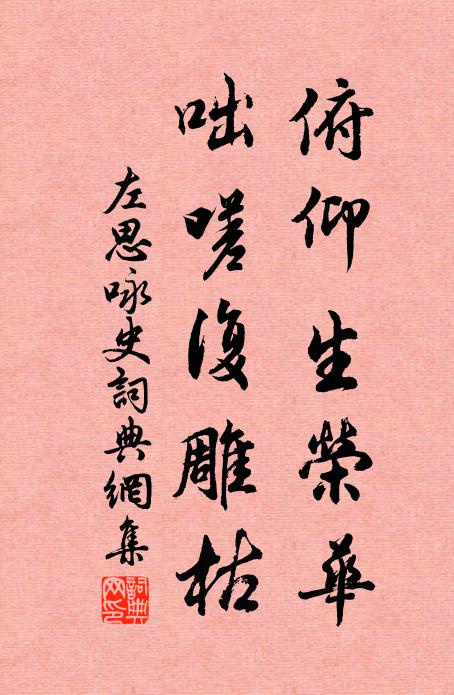 俯仰生榮華
咄嗟復雕枯
左思咏史詞典網集
詞典網印